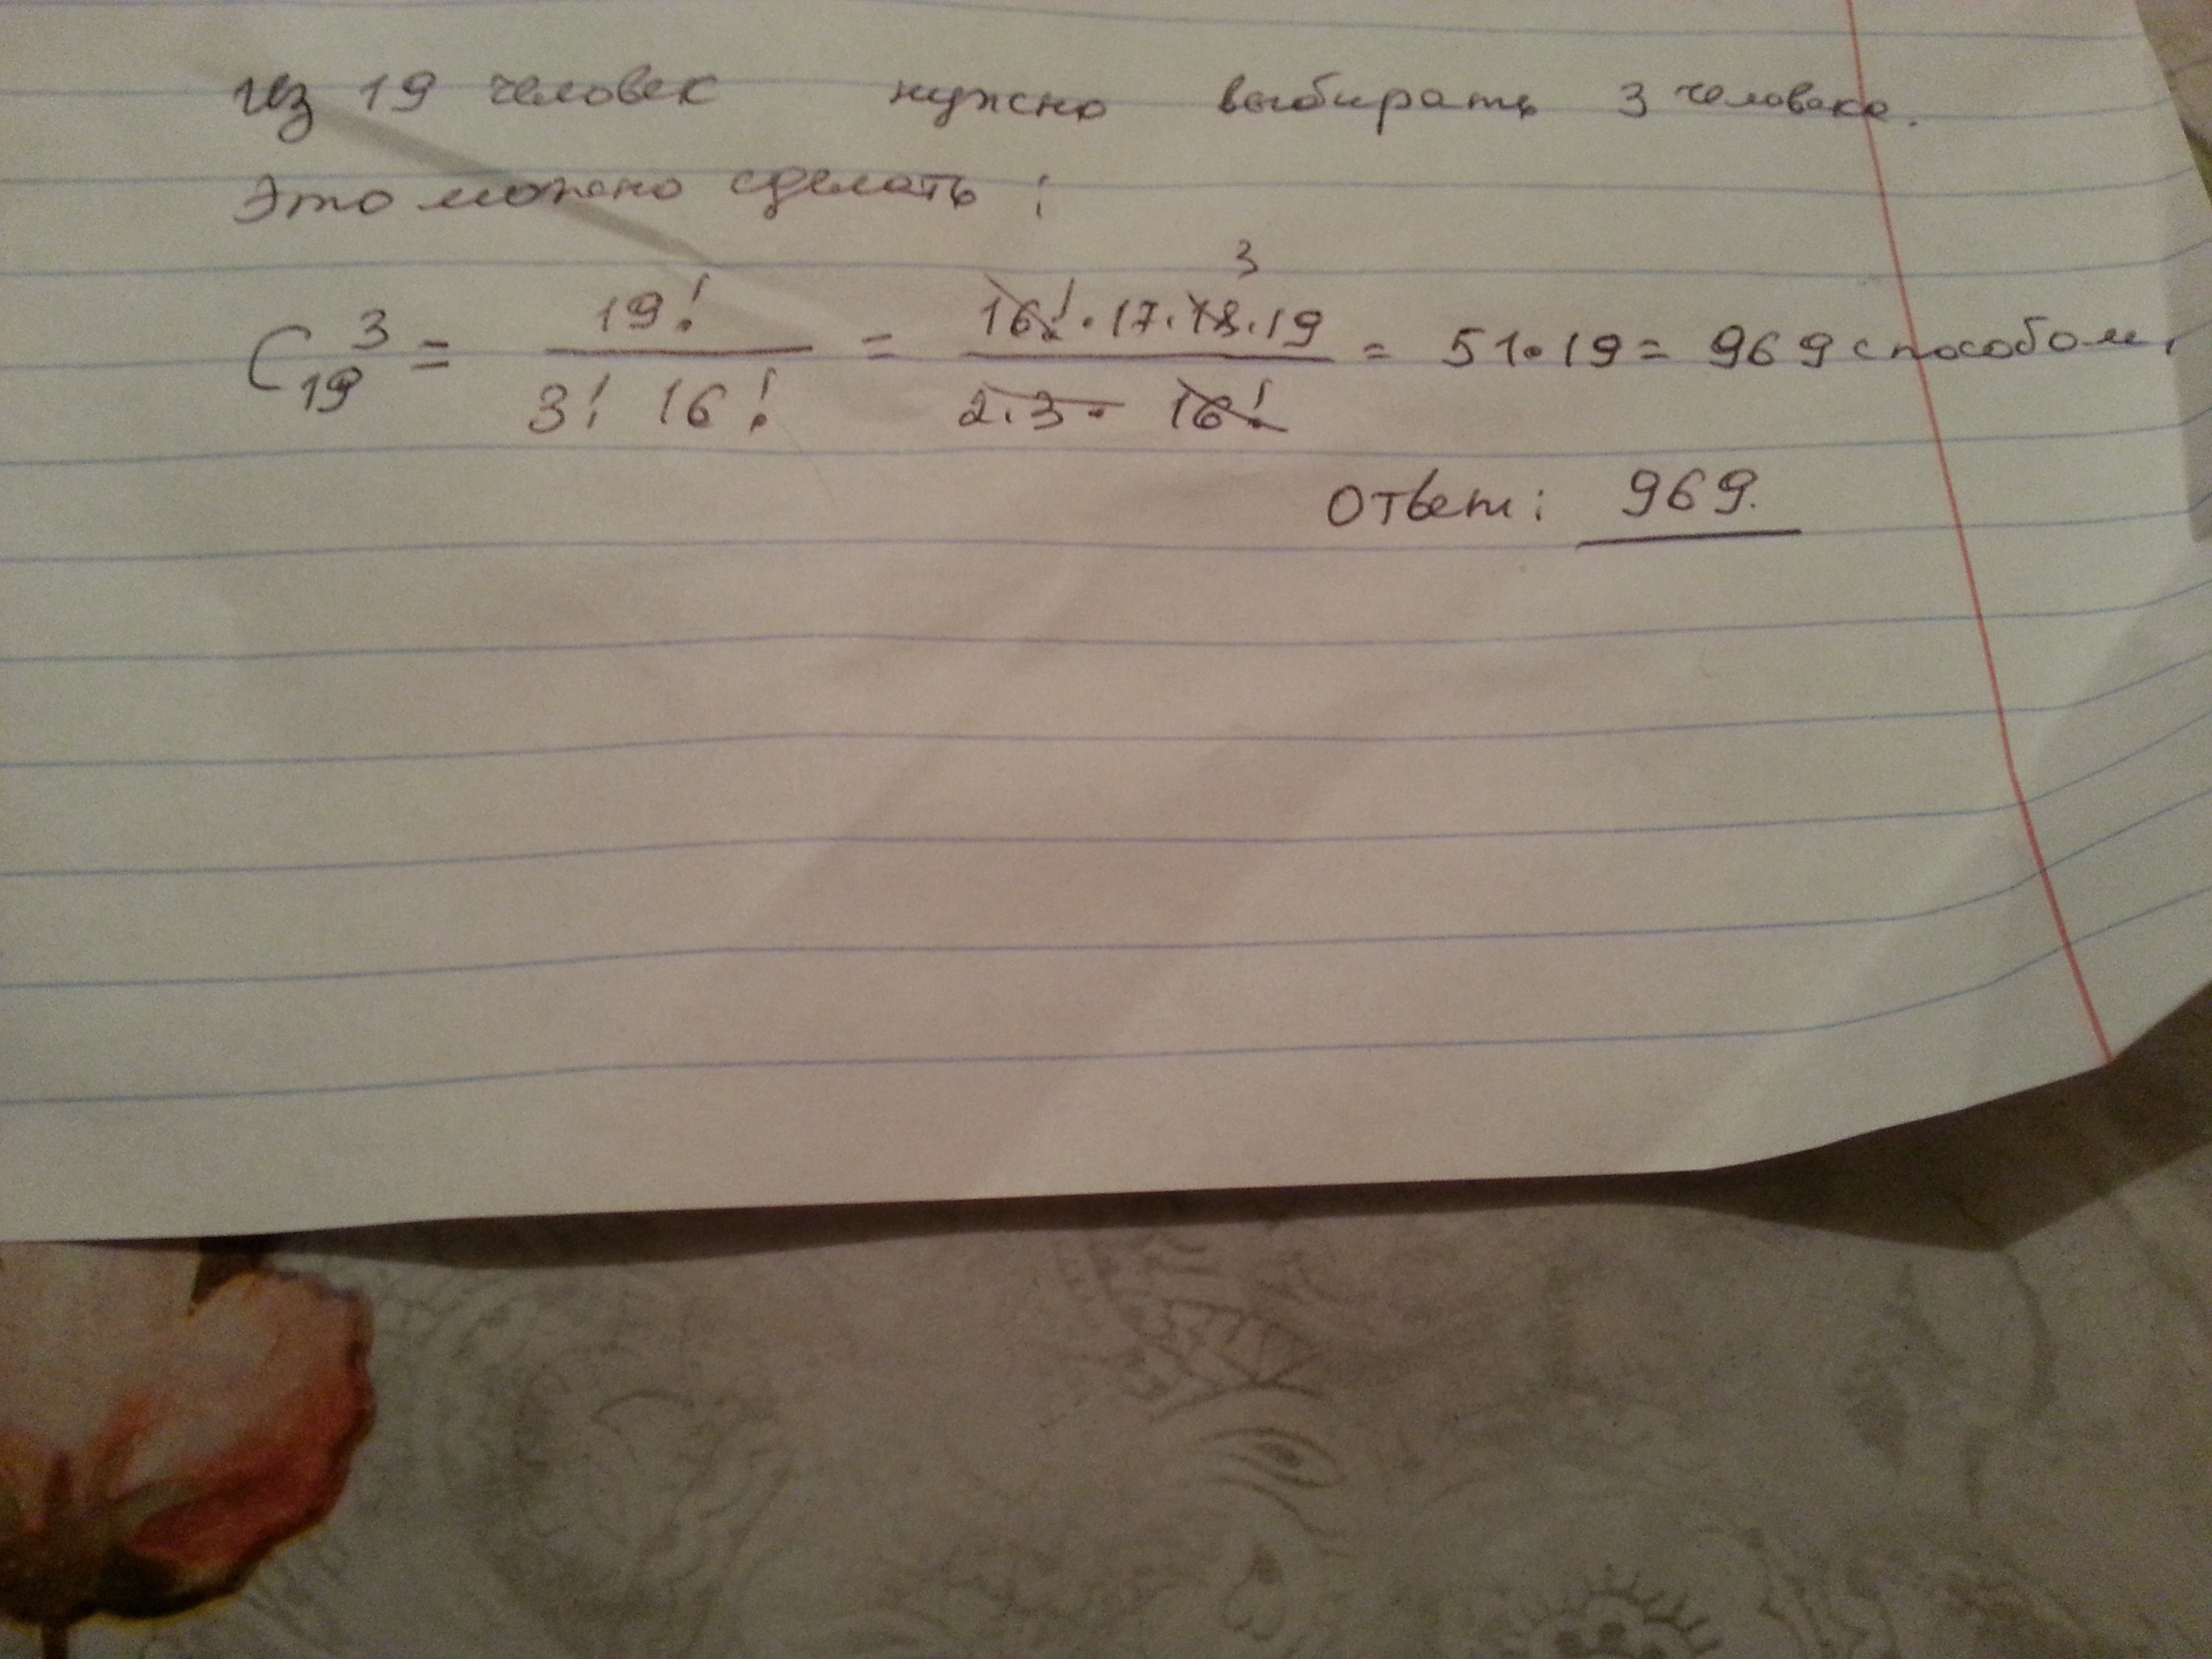 Из 19 человек нужно выбирать 3 человека.
Это можно сделать:
C₁₉³ = 19! / 3! 16! = 16!·17·18·19 / 2·3·16! = 51·19 = 969 способом.
3
Ответ: 969.